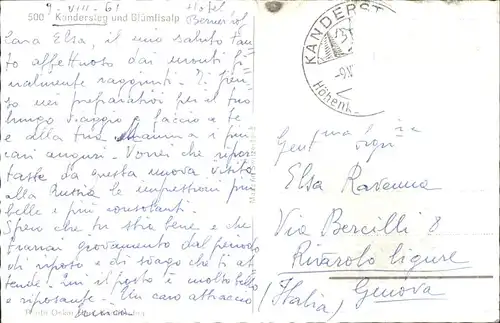 9-VIII-61 Hotel
500 Kandersteg und Blümlisalp Bernerhof
Cara Elsa, il mio saluto tan-
to affettuoso dai monti fi-
nalmente raggiunti. Ti penso
nei preparativi per il tuo
lungo viaggio e faccio a te
e alla tua Mamma i più
cari auguri. Vorrei che ripor-
taste da questa nuova visita
alla Russia le impressioni più
belle e più consolanti.
Spero che tu stia bene e che
trarrai giovamento dal periodo
di riposo e di svago che ti at-
tende. Qui il posto è molto bello
e riposante. Un caro abbraccio
KANDERST
-9.V
Höhenk
Gent.ma Sig.
Elsa Ravenna
Via Bercilli 8
Rivarolo ligure
(Italia) Genova